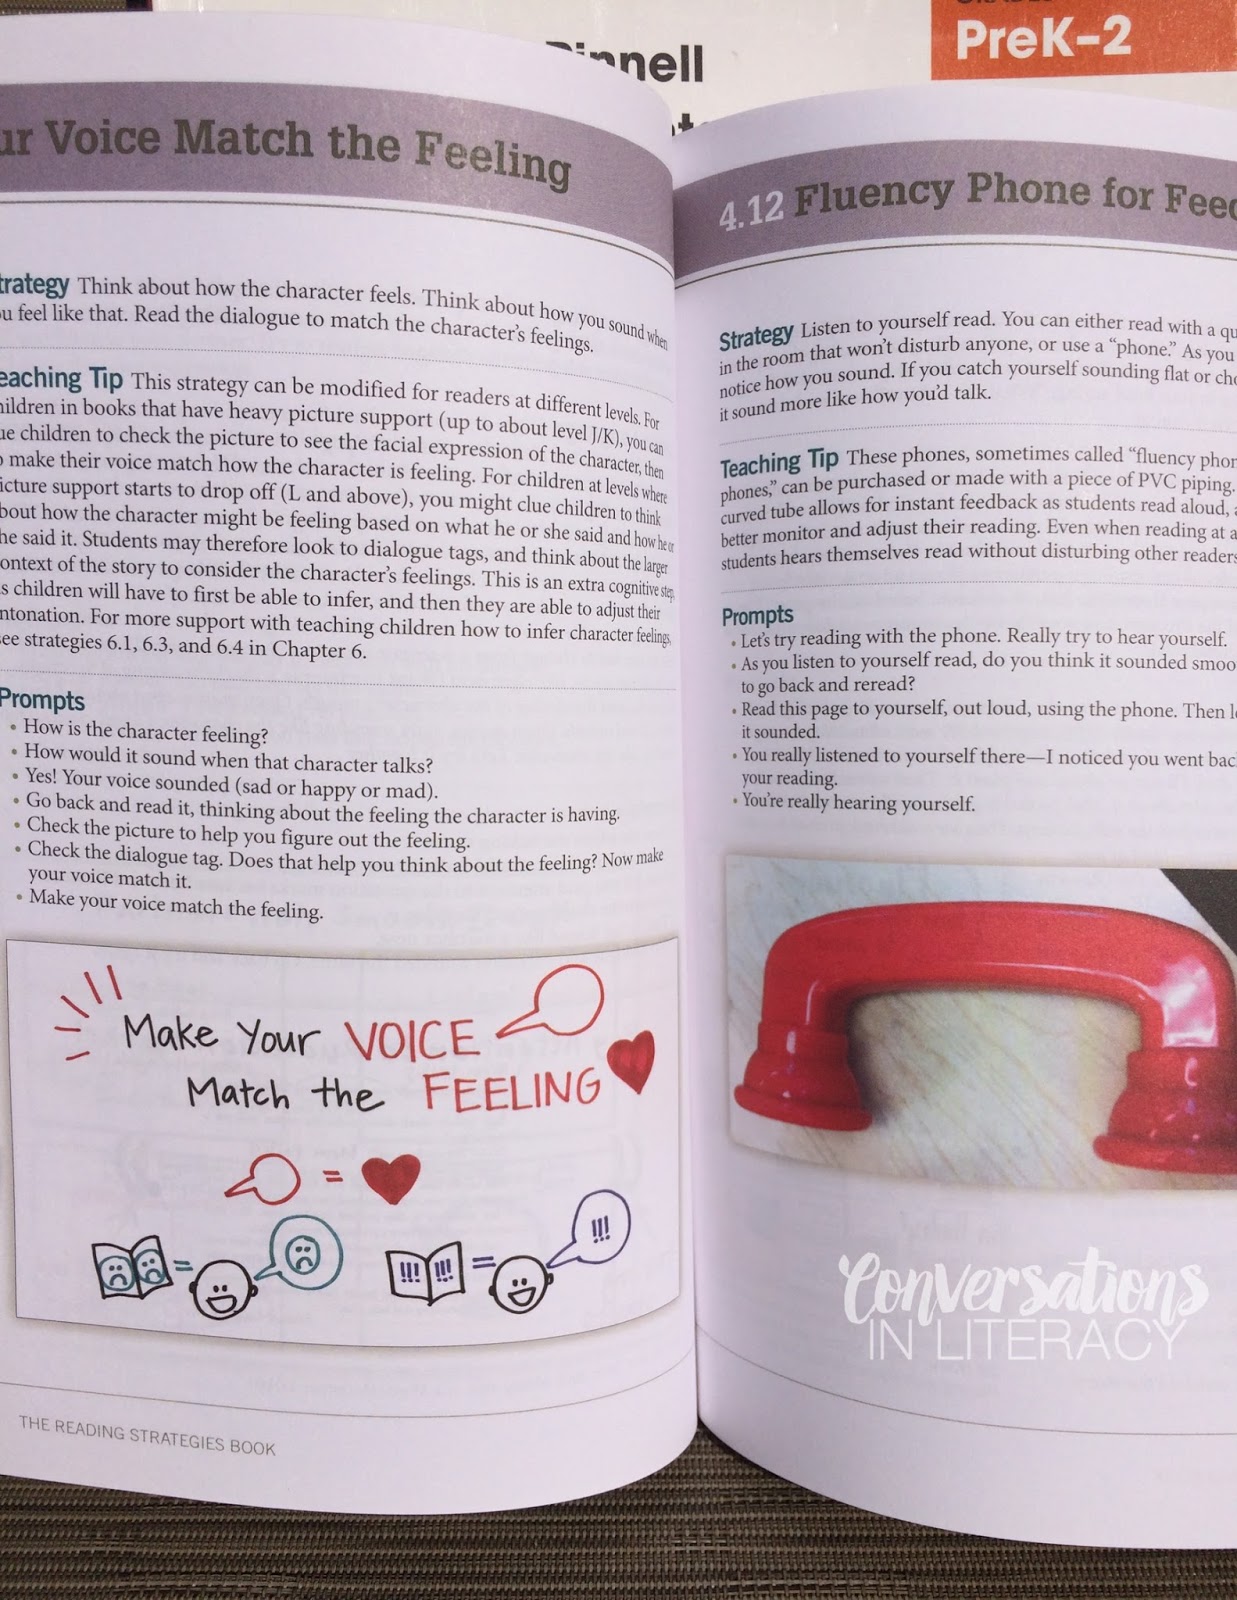 PreK–2
Voice Match the Feeling
Think about how the character feels. Think about how you sound when
feel like that. Read the dialogue to match the character's feelings.
Tip This strategy can be modified for readers at different levels. For
in books that have heavy picture support (up to about level J/K), you can
children to check the picture to see the facial expression of the character, then
make their voice match how the character is feeling. For children at levels where
support starts to drop off (L and above), you might clue children to think
how the character might be feeling based on what he or she said and how he or
said it. Students may therefore look to dialogue tags, and think about the larger
of the story to consider the character's feelings. This is an extra cognitive step,
children will have to first be able to infer, and then they are able to adjust their
For more support with teaching children how to infer character feelings,
strategies 6.1, 6.3, and 6.4 in Chapter 6.
Prompts
• How is the character feeling?
• How would it sound when that character talks?
• Yes! Your voice sounded (sad or happy or mad).
• Go back and read it, thinking about the feeling the character is having.
• Check the picture to help you figure out the feeling.
• Check the dialogue tag. Does that help you think about the feeling? Now make
your voice match it.
• Make your voice match the feeling.
Make Your VOICE
Match the FEELING
=
= !!! !!! = !!!
THE READING STRATEGIES BOOK
4.12 Fluency Phone for
Strategy Listen to yourself read. You can either read with a
in the room that won't disturb anyone, or use a “phone.” As you
notice how you sound. If you catch yourself sounding flat or
it sound more like how you'd talk.
Teaching Tip These phones, sometimes called “fluency
phones,” can be purchased or made with a piece of PVC piping.
curved tube allows for instant feedback as students read aloud,
better monitor and adjust their reading. Even when reading at a
students hears themselves read without disturbing other readers
Prompts
• Let's try reading with the phone. Really try to hear yourself.
• As you listen to yourself read, do you think it sounded
to go back and reread?
• Read this page to yourself, out loud, using the phone. Then
it sounded.
• You really listened to yourself there—I noticed you went
your reading.
• You're really hearing yourself.
Conversations
IN LITERACY